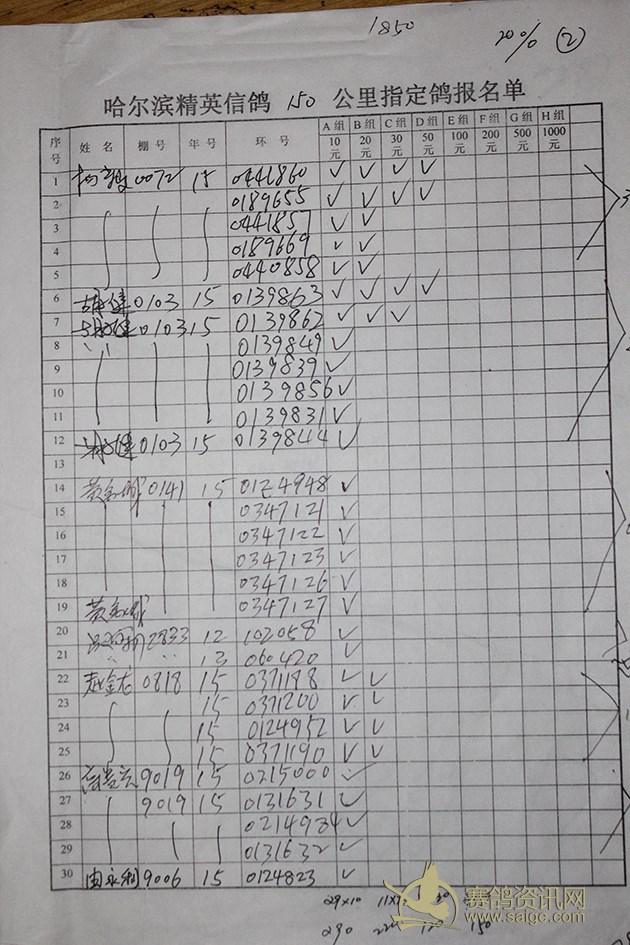 1850
20% ②
哈尔滨精英信鸽 150 公里指定鸽报名单
序号 姓名 棚号 年号 环号 A组 B组 C组 D组 E组 F组 G组 H组
10元 20元 30元 50元 100元 200元 500元 1000元
1 0072 15 0441860 ✓ ✓ ✓ ✓
2 0189655 ✓ ✓ ✓ ✓
3 0441857 ✓ ✓
4 0189669 ✓ ✓
5 0440858 ✓ ✓
6 0103 15 0139863 ✓ ✓ ✓ ✓
7 0103 15 0139862 ✓ ✓ ✓
8 0139849 ✓
9 0139839 ✓
10 0139856 ✓
11 0139831 ✓
12 0103 15 0139844 ✓
13
14 0141 15 0124948 ✓
15 0347121 ✓
16 0347122 ✓
17 0347123 ✓
18 0347126 ✓
19 0347127 ✓
20 2833 12 102058 ✓
21 13 060420 ✓
22 赵金龙 0818 15 0371188 ✓ ✓
23 15 0371200 ✓ ✓
24 15 0124952 ✓ ✓
25 15 0371190 ✓ ✓
26 9019 15 0215000 ✓
27 9019 15 0131631 ✓
28 0214984 ✓
29 0131632 ✓
30 9006 15 0124823 ✓
29×10
290 150
赛鸽资讯网
www.saige.com